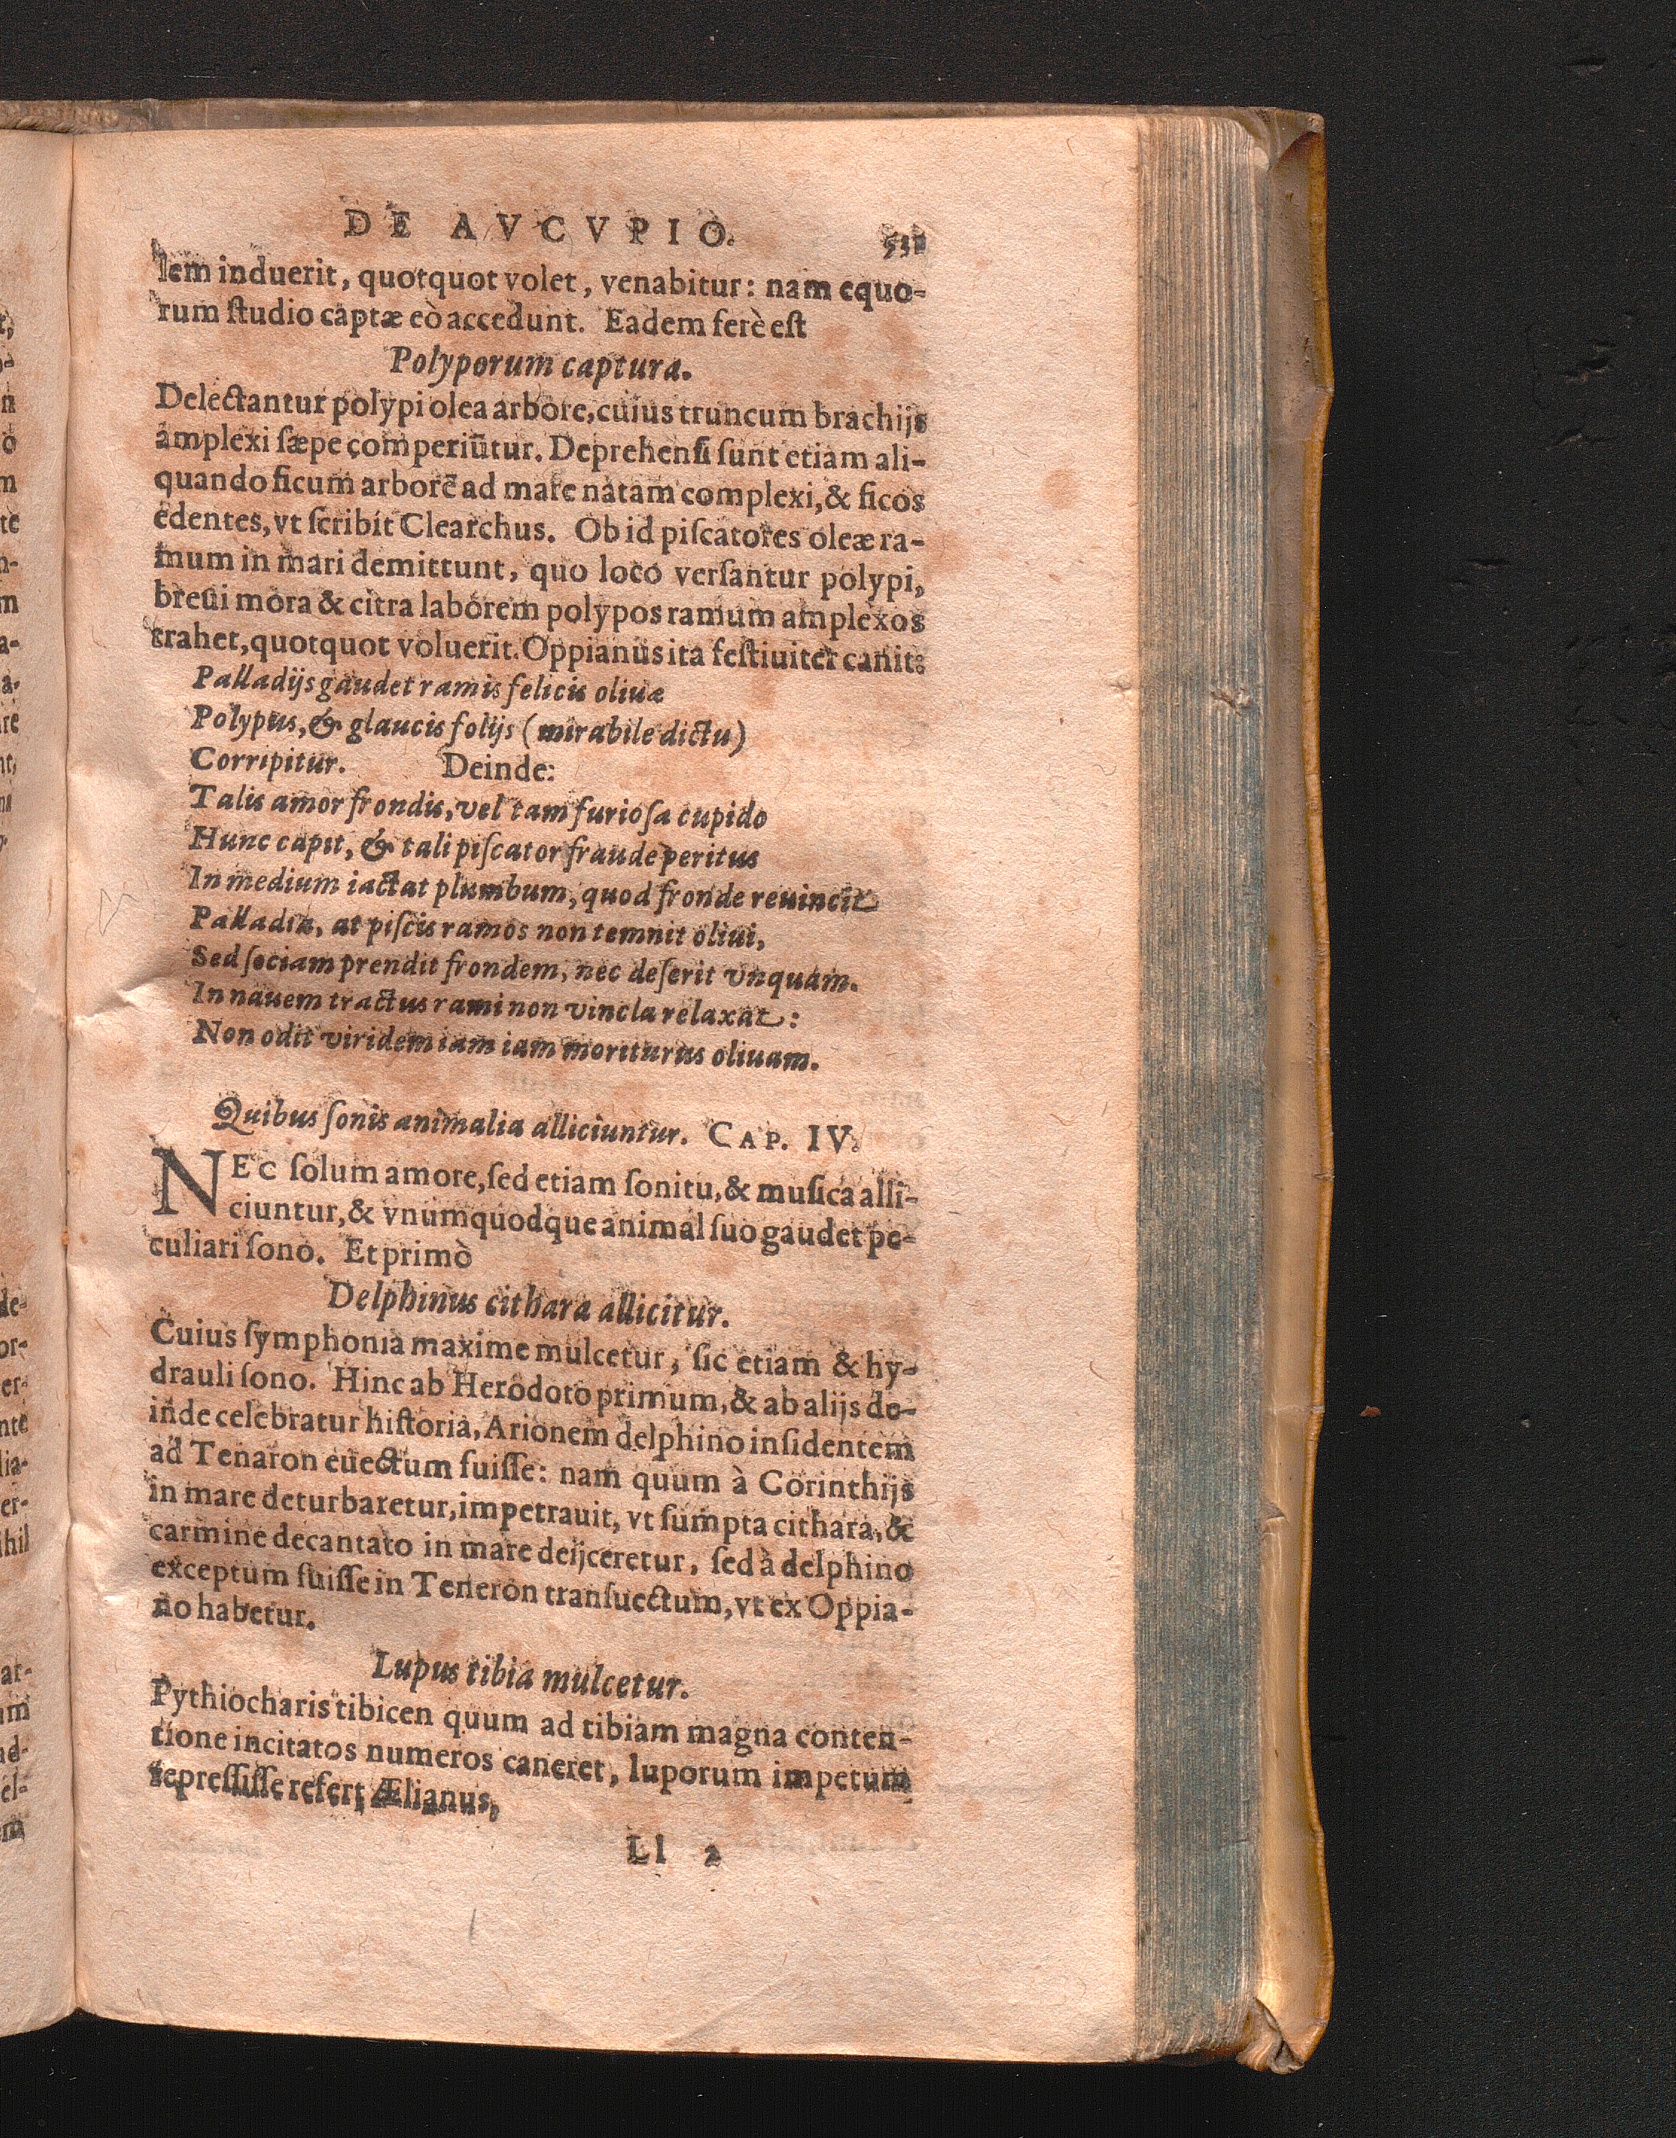 DE AVCVPIO. 531
lem induerit, quotquot volet, venabitur: nam equo-
rum ſtudio captæ eò accedunt. Eadem ferè eſt
Polyporum captura.
Delectantur polypi olea arbore, cuius truncum brachijs
amplexi ſæpe comperiūtur. Deprehenſi ſunt etiam ali-
quando ficum arborē ad mare natam complexi, & ficos
edentes, vt ſcribit Clearchus. Ob id piſcatores oleæ ra-
mum in mari demittunt, quo loco verſantur polypi,
breui mora & citra laborem polypos ramum amplexos
trahet, quotquot voluerit. Oppianus ita feſtiuiter canit:
Palladijs gaudet ramis felicis oliuæ
Polypus, & glaucis folijs (mirabile dictu)
Corripitur. Deinde:
Talis amor frondis, vel tam furioſa cupido
Hunc capit, & tali piſcator fraude peritus
In medium iactat plumbum, quod fronde reuincit
Palladia, at piſcis ramos non temnit oliui,
Sed ſociam prendit frondem, nec deſerit vnquam.
In nauem tractus rami non vincla relaxat:
Non odit viridem iam iam moriturus oliuam.
Quibus ſonis animalia alliciuntur. CAP. IV.
NEC ſolum amore, ſed etiam ſonitu, & muſica alli-
ciuntur, & vnumquodque animal ſuo gaudet pe-
culiari ſono. Et primò
Delphinus cithara allicitur.
Cuius ſymphonia maxime mulcetur, ſic etiam & hy-
drauli ſono. Hinc ab Herodoto primum, & ab alijs de-
inde celebratur hiſtoria, Arionem delphino inſidentem
ad Tenaron euectum fuiſſe: nam quum à Corinthijs
in mare deturbaretur, impetrauit, vt ſumpta cithara, &
carmine decantato in mare deijceretur, ſed à delphino
exceptum fuiſſe in Teneron tranſuectum, vt ex Oppia-
no habetur.
Lupus tibia mulcetur.
Pythiocharis tibicen quum ad tibiam magna conten-
tione incitatos numeros caneret, luporum impetum
repreſſiſſe refert Ælianus,
Ll 2